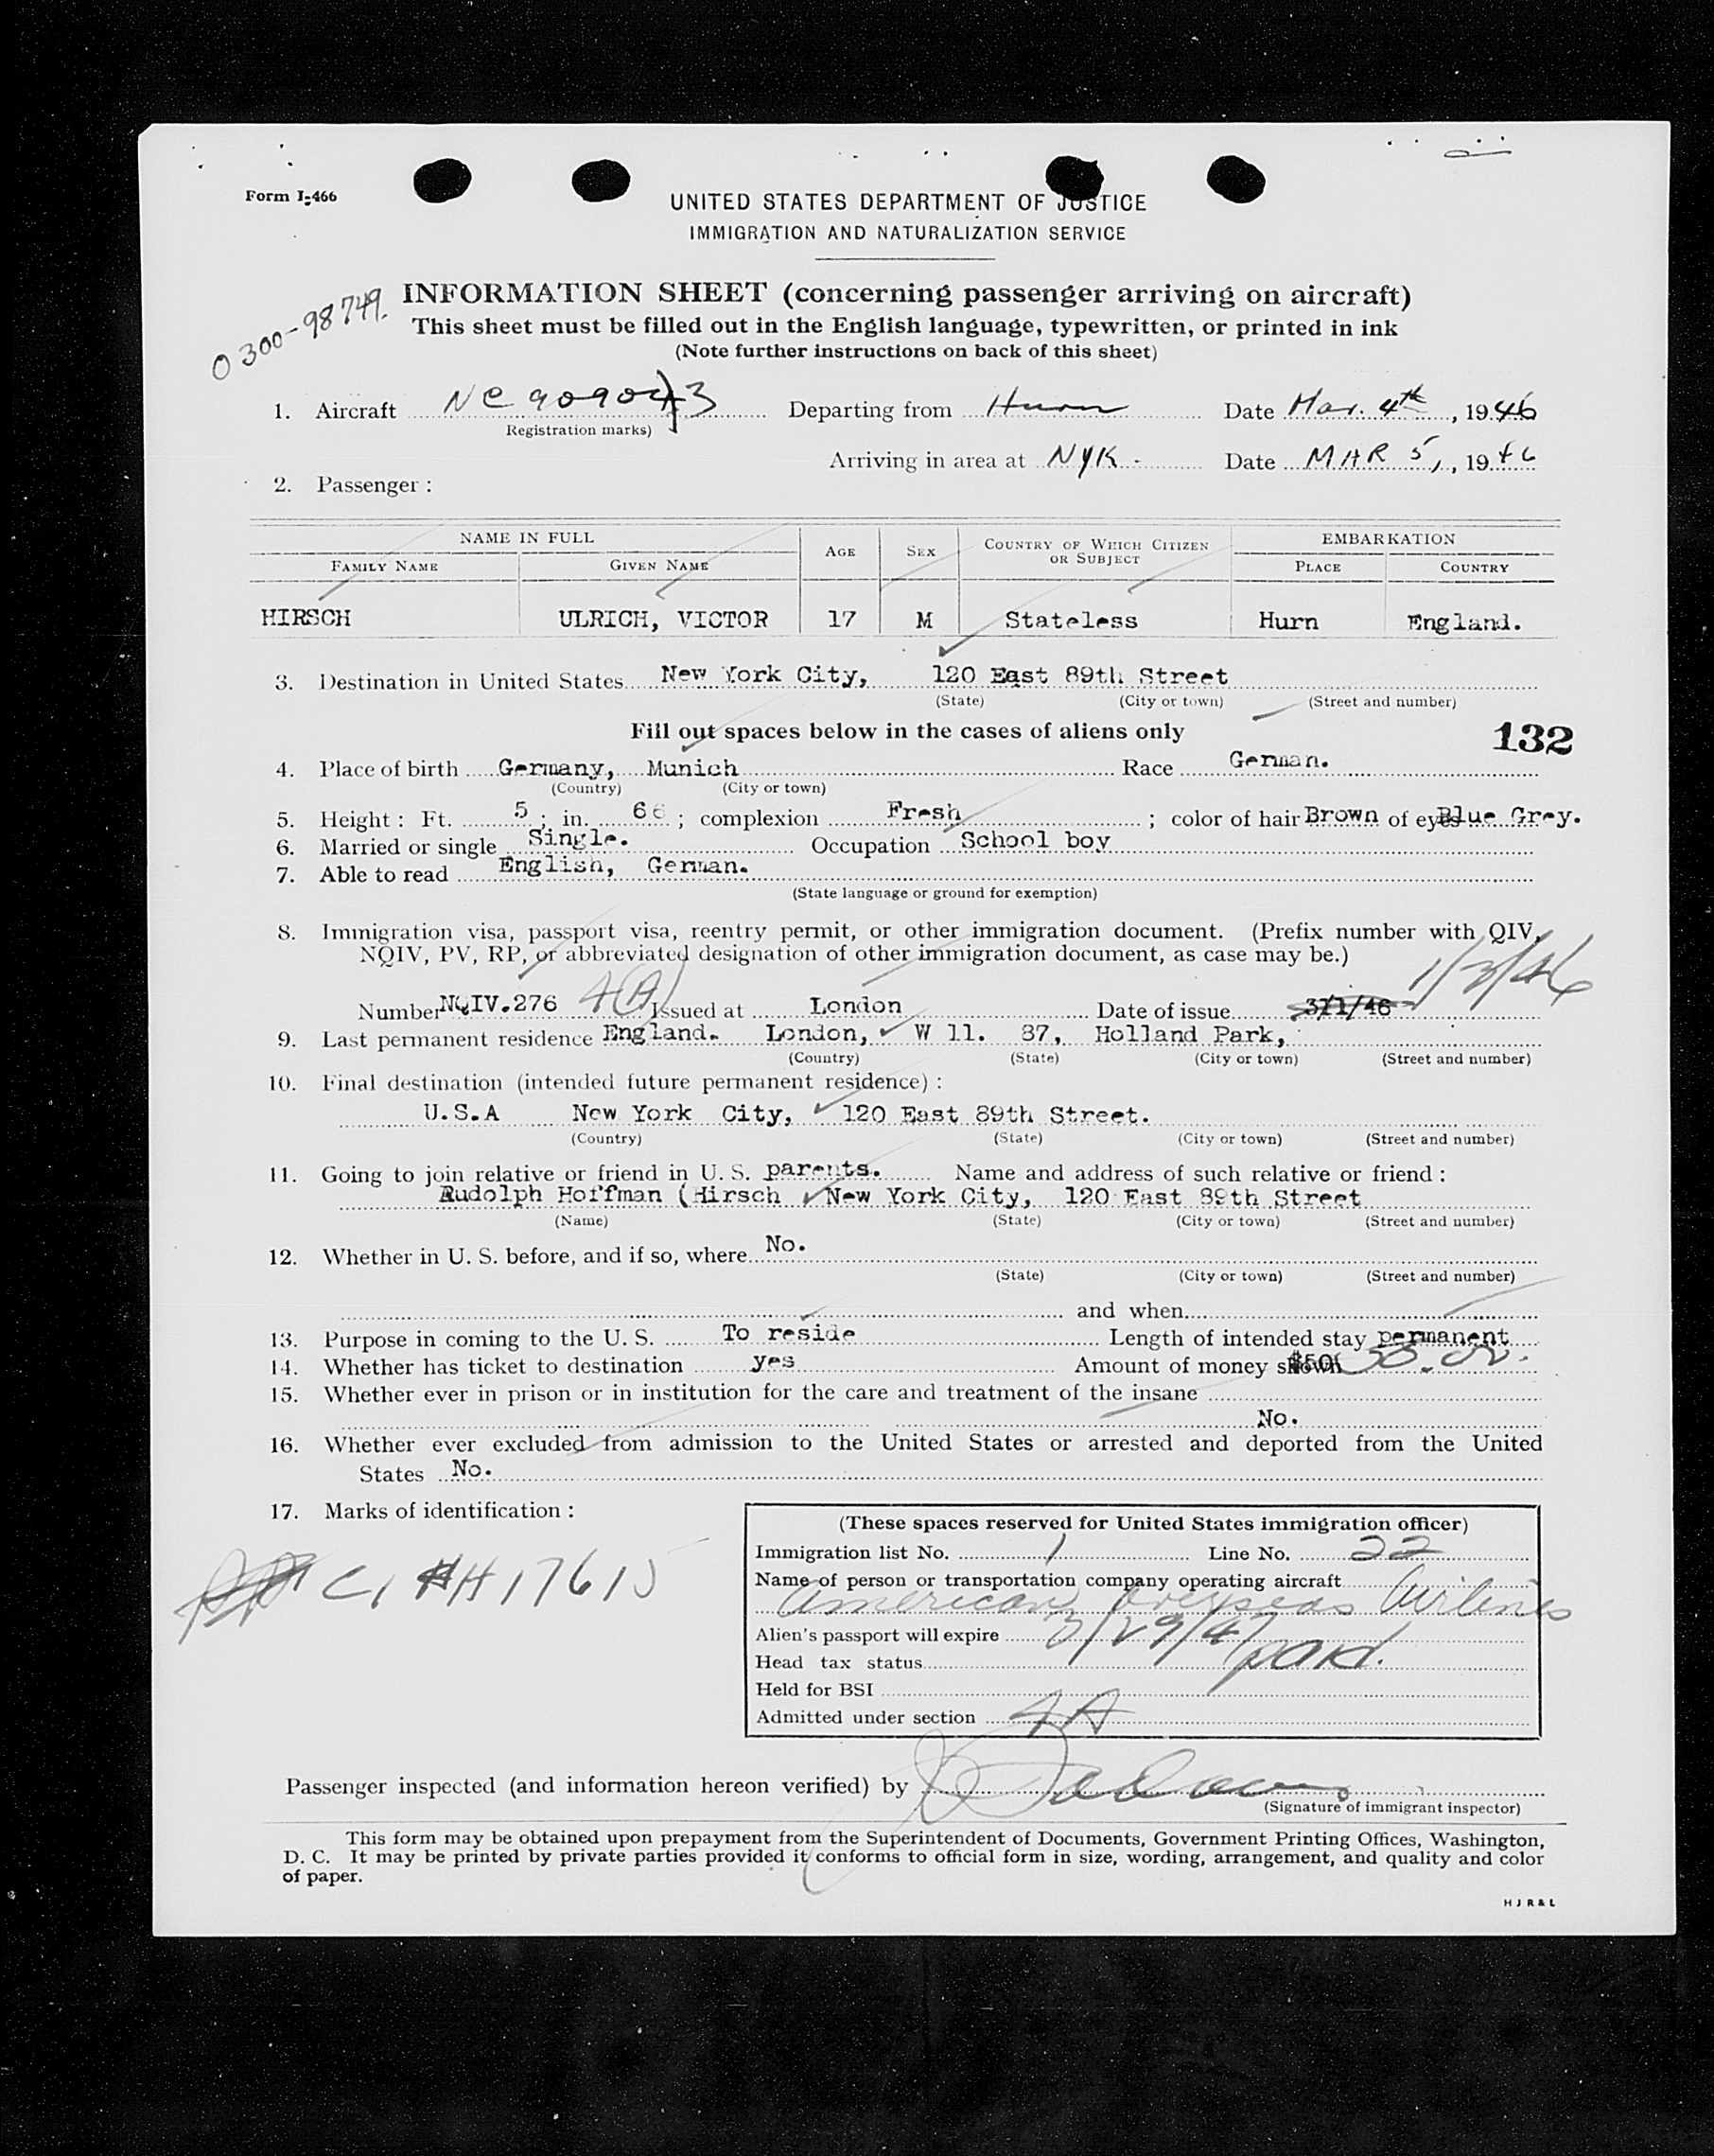 Form I-466
UNITED STATES DEPARTMENT OF JUSTICE
IMMIGRATION AND NATURALIZATION SERVICE
0300-98749.
INFORMATION SHEET (concerning passenger arriving on aircraft)
This sheet must be filled out in the English language, typewritten, or printed in ink
(Note further instructions on back of this sheet)
1. Aircraft Departing from Hurn Date Mar. 4th, 1946
Registration marks)
Arriving in area at NYK. Date MAR 5, 1946
2. Passenger:
NAME IN FULL AGE SEX COUNTRY OF WHICH CITIZEN OR SUBJECT EMBARKATION
FAMILY NAME GIVEN NAME PLACE COUNTRY
HIRSCH ULRICH, VICTOR 17 M Stateless Hurn England.
3. Destination in United States New York City, 120 East 89th Street
(State) (City or town) (Street and number)
Fill out spaces below in the cases of aliens only 132
4. Place of birth Germany, Munich Race German.
(Country) (City or town)
5. Height: Ft. 5; in. ; complexion Fresh; color of hair Brown of eyes Blue Grey.
6. Married or single Single. Occupation School boy
7. Able to read English, German.
(State language or ground for exemption)
8. Immigration visa, passport visa, reentry permit, or other immigration document. (Prefix number with QIV,
NQIV, PV, RP, or abbreviated designation of other immigration document, as case may be.)
1/3/46
Number NQIV.276 4(A) Issued at London Date of issue 3/1/46
9. Last permanent residence England. London, W 11. 87, Holland Park,
(Country) (State) (City or town) (Street and number)
10. Final destination (intended future permanent residence):
U.S.A New York City, 120 East 89th Street.
(Country) (State) (City or town) (Street and number)
11. Going to join relative or friend in U. S. parents. Name and address of such relative or friend:
Rudolph Hoffman (Hirsch New York City, 120 East 89th Street
(Name) (State) (City or town) (Street and number)
12. Whether in U. S. before, and if so, where No.
(State) (City or town) (Street and number)
and when
13. Purpose in coming to the U. S. To reside Length of intended stay permanent
14. Whether has ticket to destination yes Amount of money shown $50 50.00
15. Whether ever in prison or in institution for the care and treatment of the insane
No.
16. Whether ever excluded from admission to the United States or arrested and deported from the United
States No.
17. Marks of identification:
CI #H17615
(These spaces reserved for United States immigration officer)
Immigration list No. 1 Line No. 22
Name of person or transportation company operating aircraft
American Overseas Airlines
Alien's passport will expire 3/29/47
Head tax status paid.
Held for BSI
Admitted under section 4A
Passenger inspected (and information hereon verified) by
(Signature of immigrant inspector)
This form may be obtained upon prepayment from the Superintendent of Documents, Government Printing Offices, Washington,
D. C. It may be printed by private parties provided it conforms to official form in size, wording, arrangement, and quality and color
of paper.
H J R & L